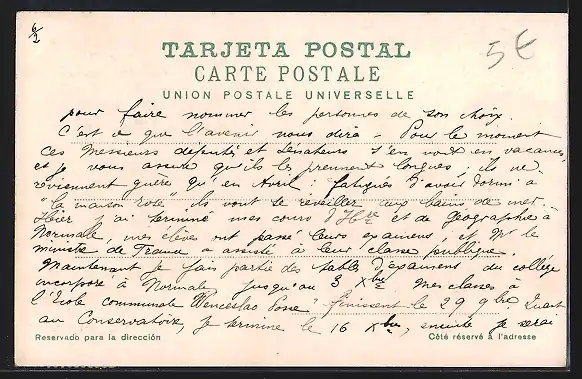 6/2
5€
TARJETA POSTAL
CARTE POSTALE
UNION POSTALE UNIVERSELLE
pour faire nommer les personnes de son choix.
C'est ce que l'avenir nous dira - Pour le moment
ces Messieurs députés et sénateurs s'en vont en vacances
et je vous assure qu'ils les prennent longues, ils ne
reviennent guères qu'en Avril : fatigués d'avoir dormi à
"la maison rose" ils vont se réveiller aux bains de mer.
Hier j'ai terminé mes cours d'Hre et de Géographie à
Normale, mes élèves ont passé leurs examens et Mr le
ministre de France a assisté à leur classe publique.
Maintenant je fais partie des tables d'examens du collège
incorporé à Normale jusqu'au 3 Xbre Mes classes à
l'école communale "Wenceslao Posse" finissent le 29 9bre. Quant
au Conservatoire, je termine le 16 Xbre, ensuite je serai
Reservado para la dirección
Côté réservé à l'adresse